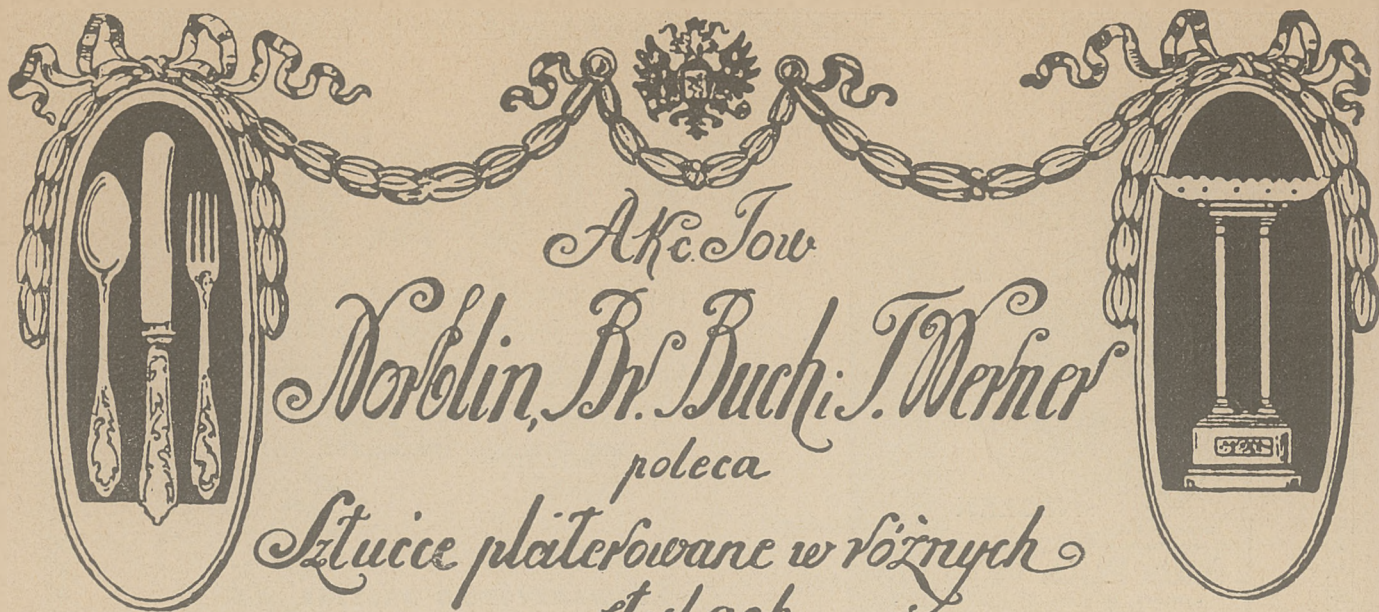 Akc. Tow
Norblin, Br. Buch i T. Werner
poleca
Sztućce platerowane w różnych